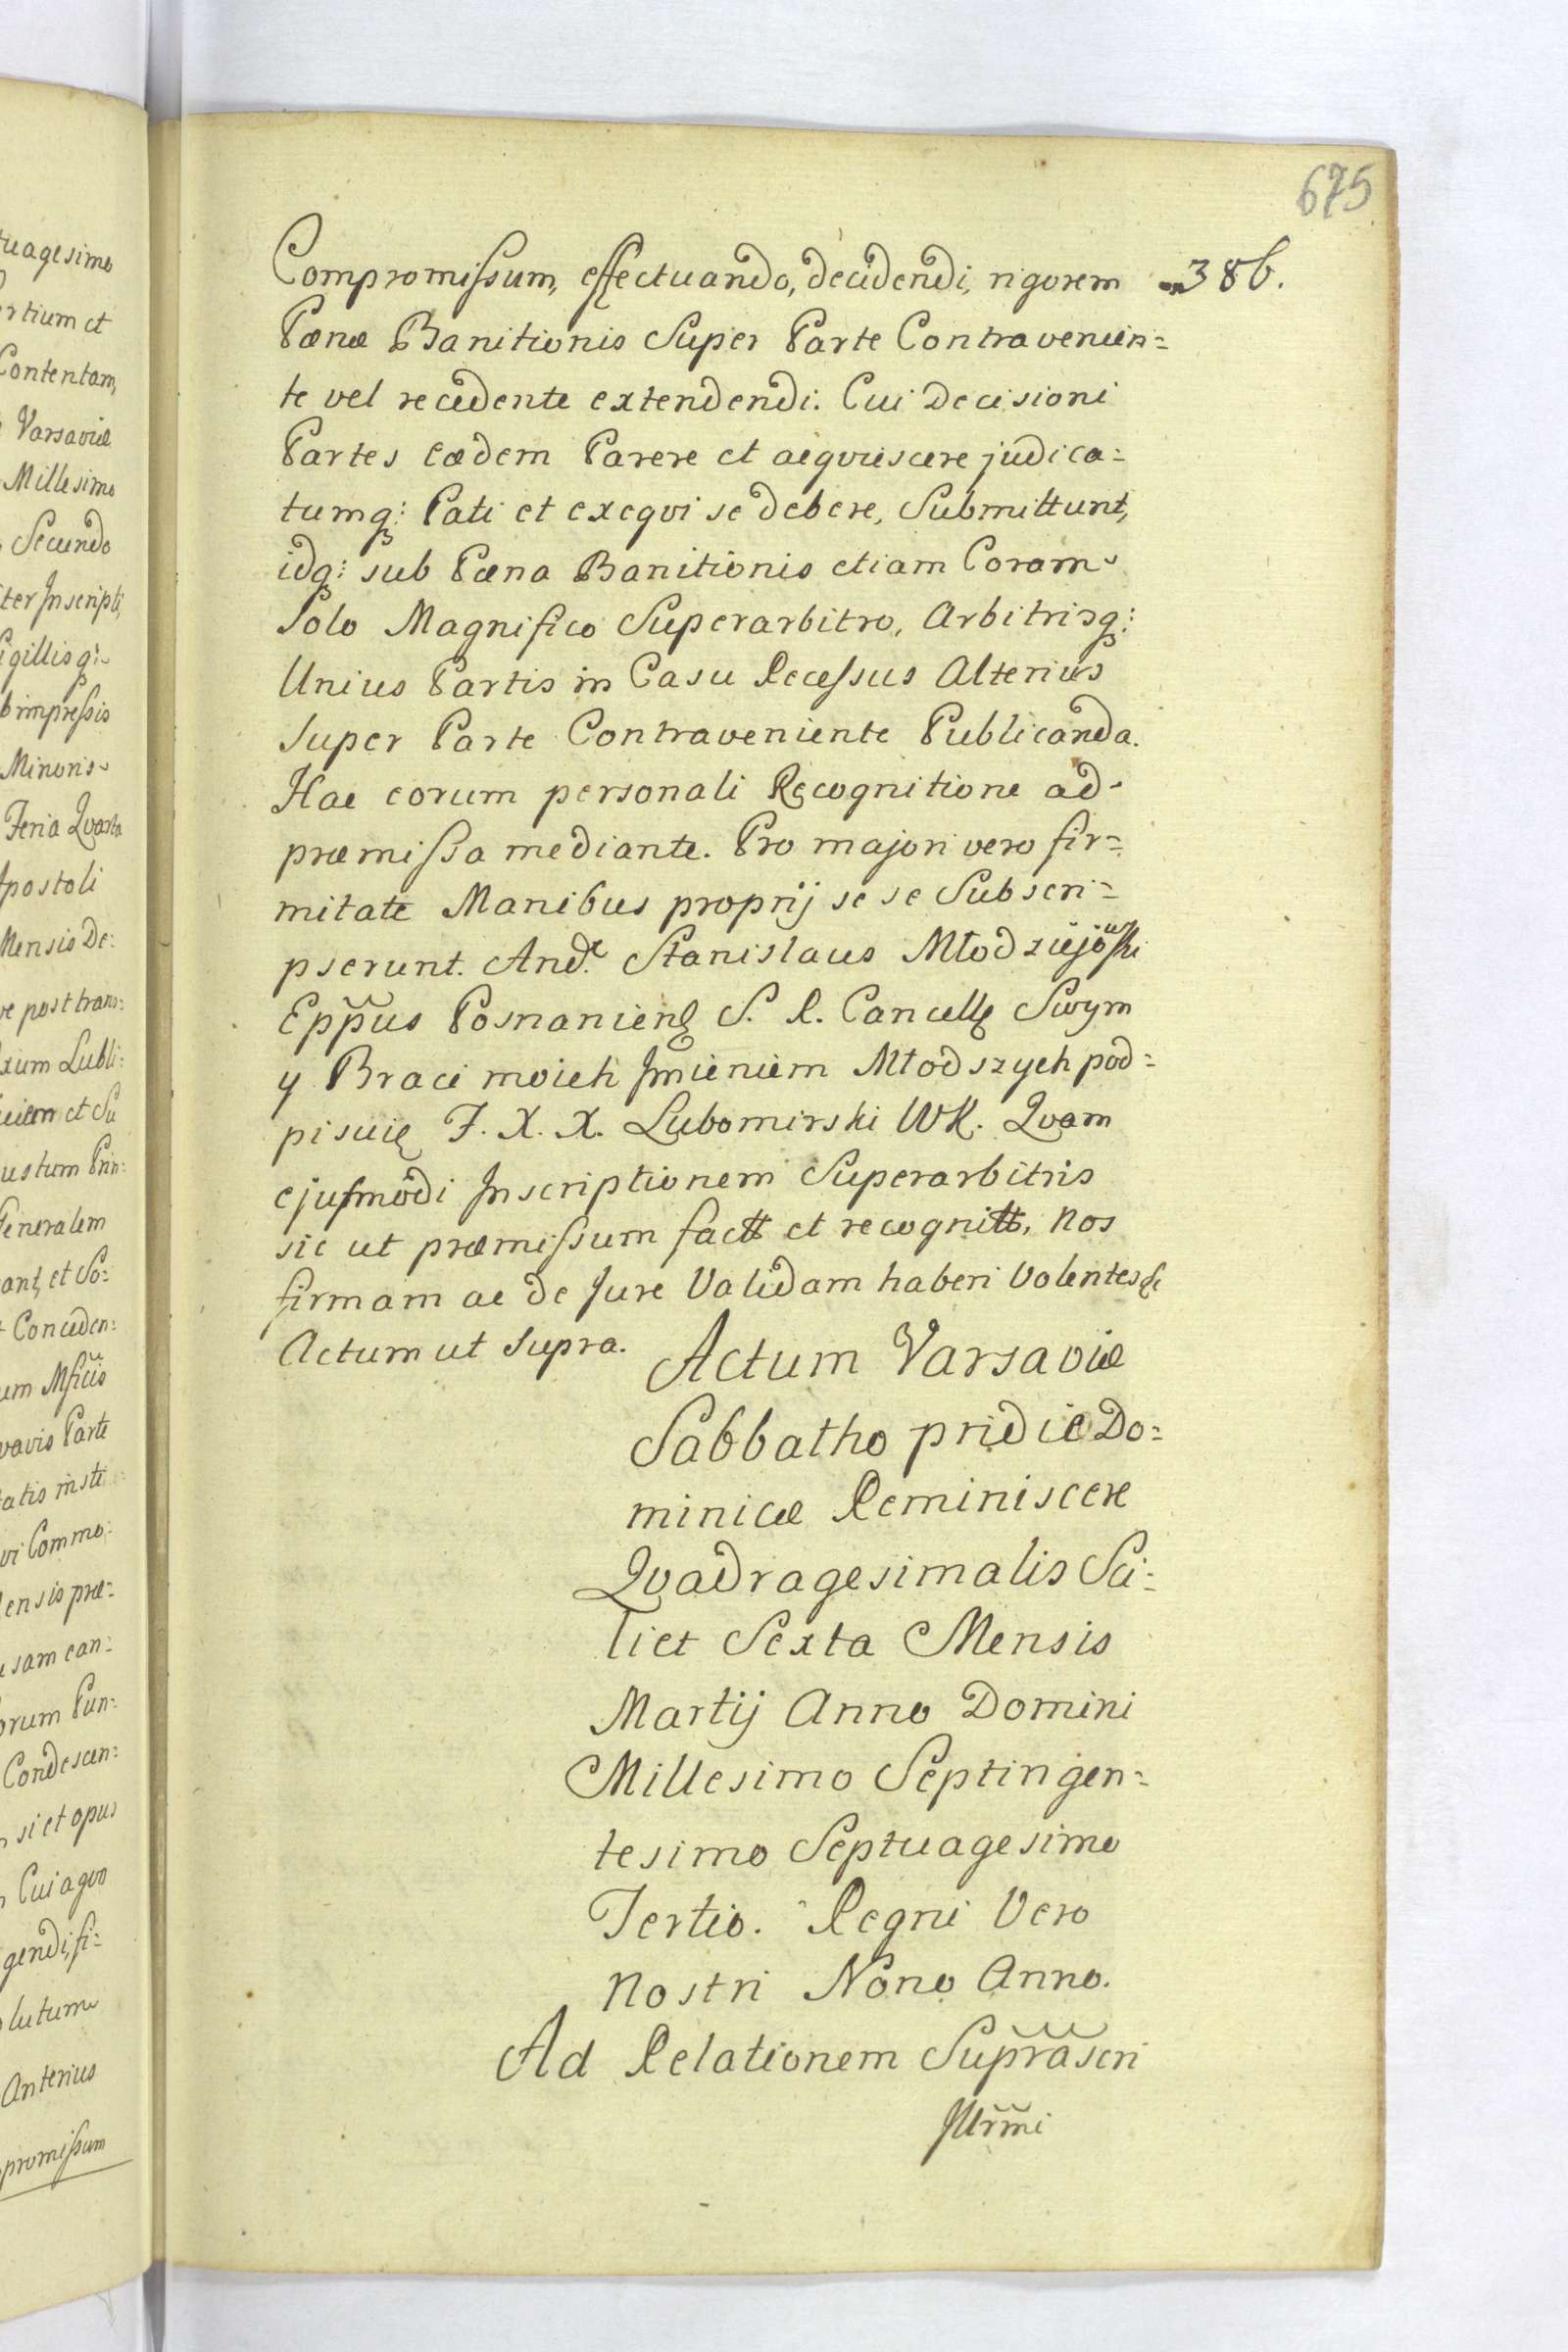 675
Compromissum, effectuando, decidendi, rigorem
386.
Pænæ Banitionis Super Parte Contravenien=
te vel recedente extendendi. Cui Decisioni
Partes eædem Parere et acquiescere judica=
tumq: Pati et exequi se debere, Submittunt,
idq: sub Pæna Banitionis etiam Coram
Solo Magnifico Superarbitro, Arbitrisq:
Unius Partis in Casu Recessus Alterius
Super Parte Contraveniente Publicanda.
Hac eorum personali Recognitione ad
præmissa mediante. Pro majori vero fir=
mitate Manibus proprij se se Subscri=
pserunt. And. Stanislaus Młodziejowski
Eppus Posnaniens S. R. Cancell Swym
y Braci moich Jmieniem Młodszych pod=
pisuię F. X. X. Lubomirski WK. Qvam
ejusmodi Inscriptionem Superarbitris
sic ut præmissum fact et recognitt, Nos
firmam ac de Jure Validam haberi Volentes
Actum ut Supra.
Actum Varsaviæ
Sabbatho pridie Do=
minicæ Reminiscere
Qvadragesimalis Sci=
licet Sexta Mensis
Martij Anno Domini
Millesimo Septingen=
tesimo Septuagesimo
Tertio. Regni Vero
Nostri Nono Anno.
Ad Relationem Suprascri
Jllrmi
tuagesimo
ertium et
Contentam,
Varsaviæ
Millesimo
Secundo
iter Inscripti,
Sigillisq:
impressis
Minoris
Feria Qvarta
Apostoli
Mensis De:
post trans:
xum Lubli:
et Su
ustum Prin:
Generalem
et So:
Conceden:
um Mficis
vavis Parte
tatis insti
vi Commo:
ensis præ:
usam ean:
orum Pun:
Condescen:
si et opus
Cui a qvo
gendi, fi=
lutum
Anterius
promissum